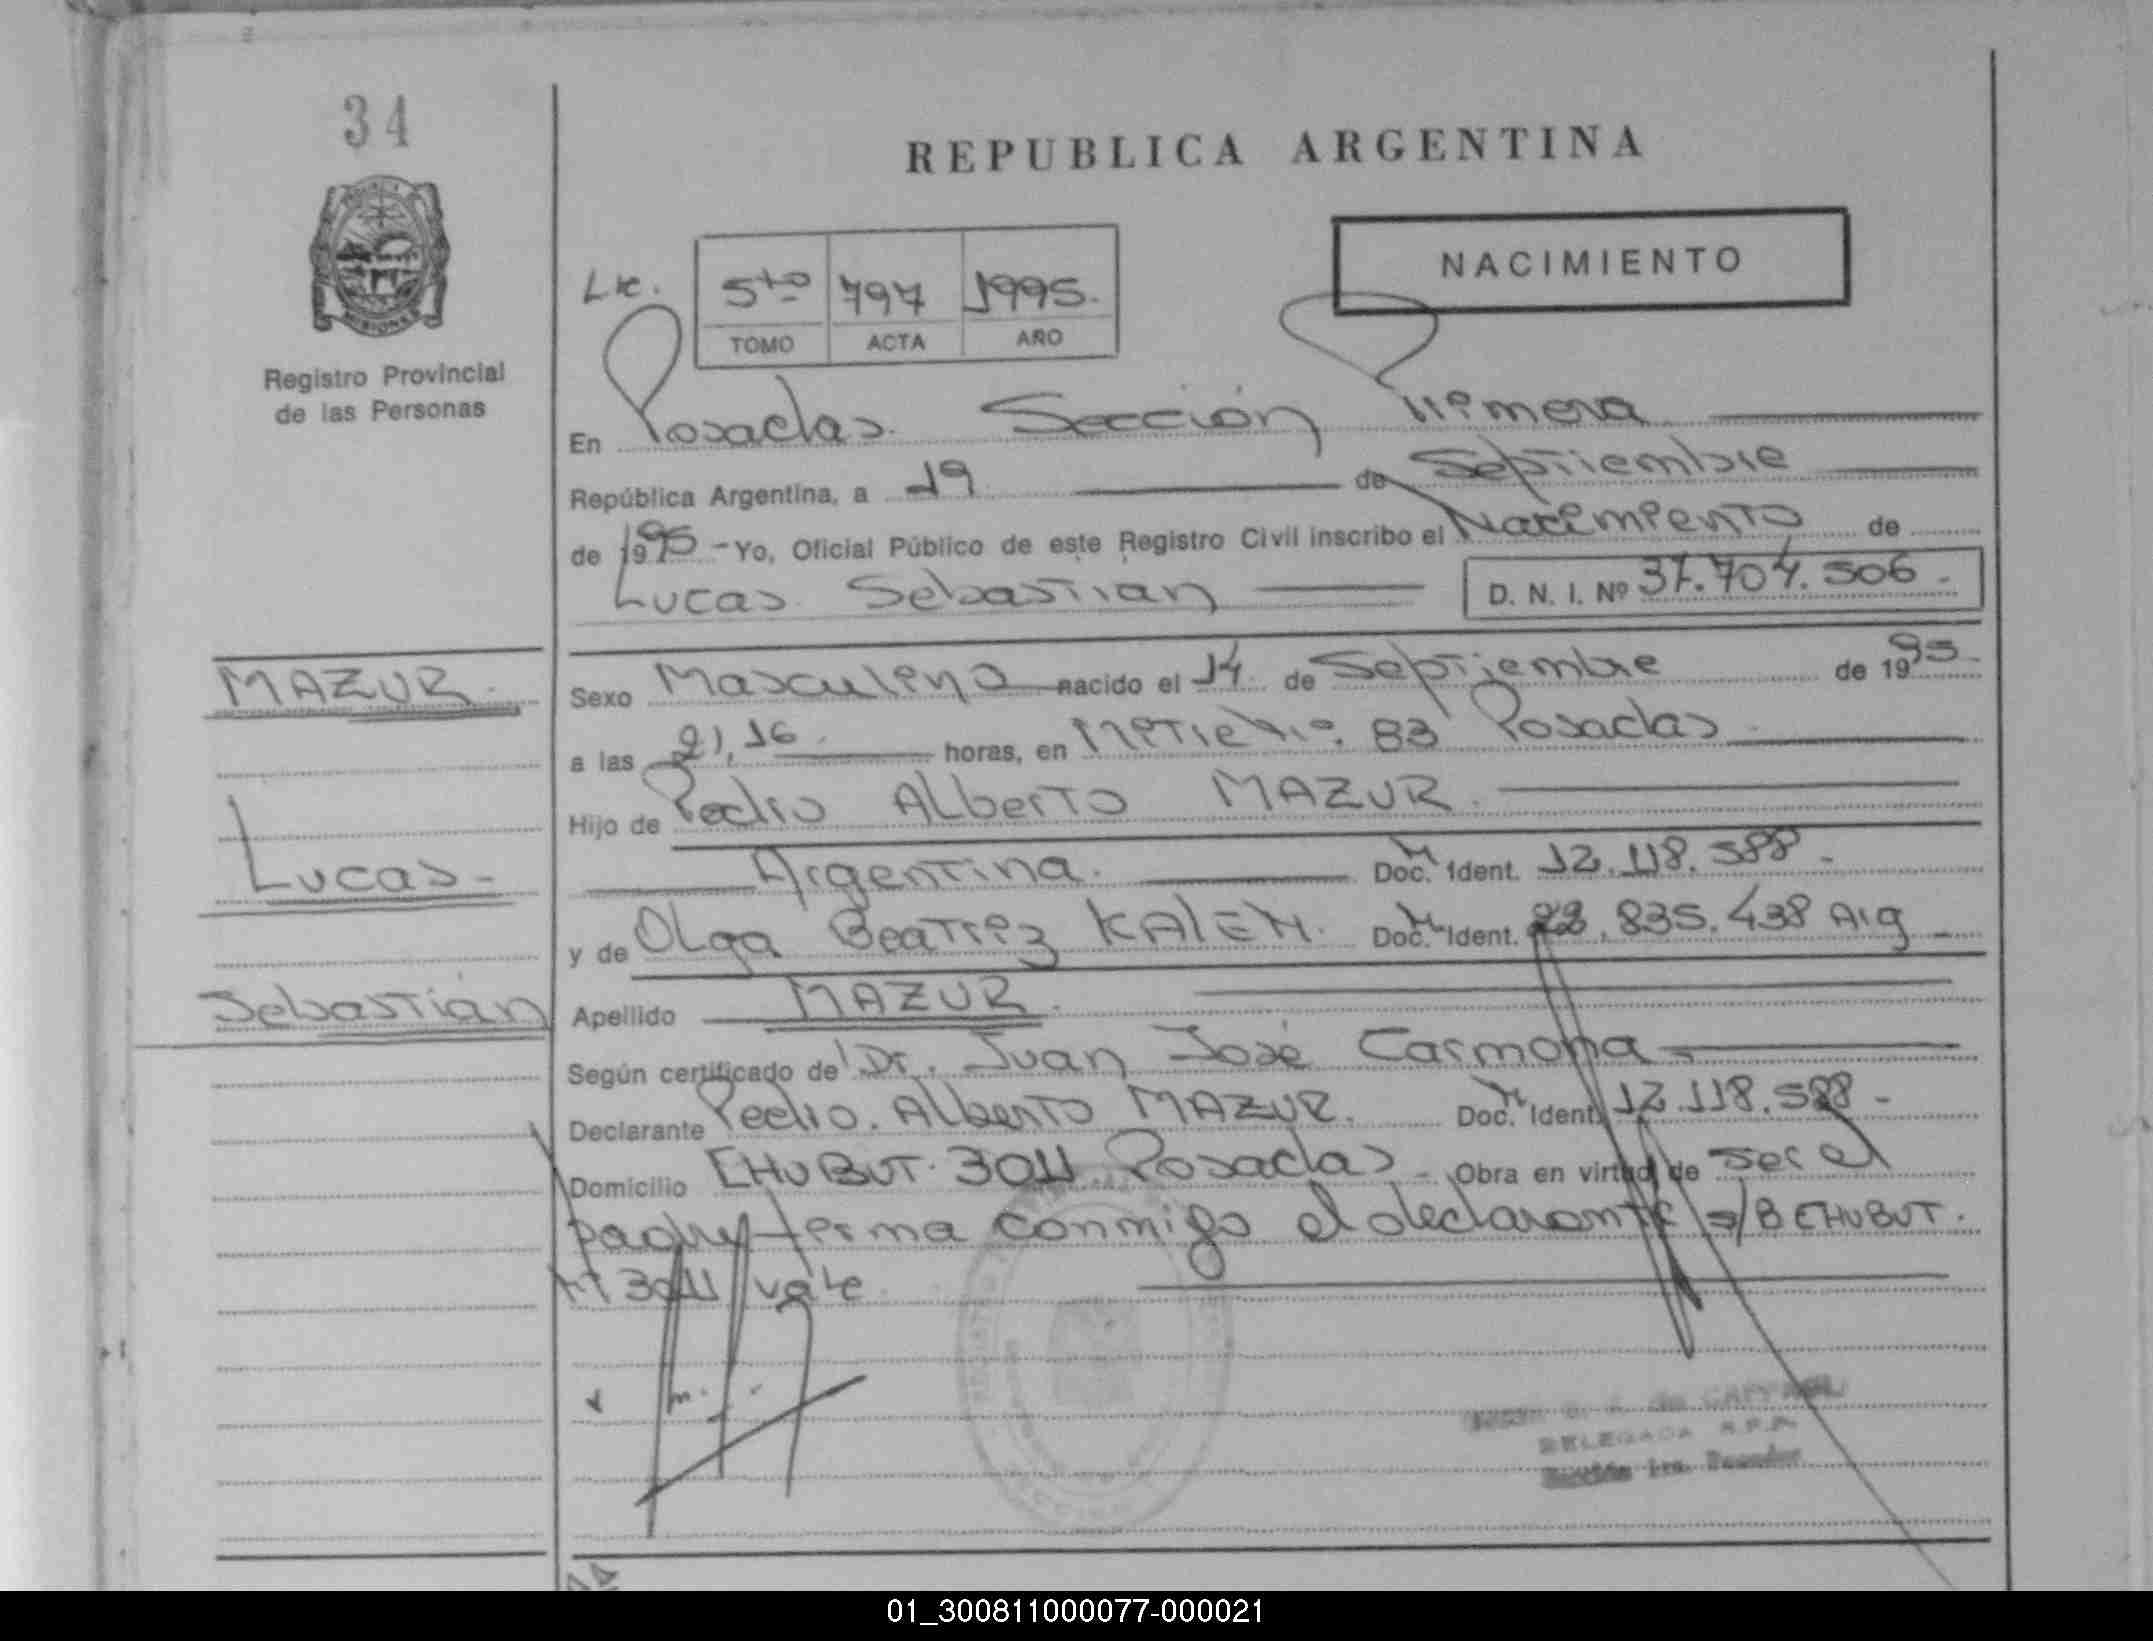 34
REPUBLICA ARGENTINA
NACIMIENTO
MISIONES
Registro Provincial
de las Personas
5to 797 1995.
TOMO ACTA AÑO
En Posadas. Sección Primera
República Argentina, a 19 de Septiembre
de 1995 - Yo, Oficial Público de este Registro Civil inscribo el Nacimiento de
Lucas Sebastian D. N. I. Nº 37.704.506.-
MAZUR.
Sexo Masculino nacido el 14 de Septiembre de 1995.
a las 21,16. horas, en 83 Posadas
Hijo de Pedro Alberto MAZUR.
Lucas-
Argentina. Doc. Ident. 12.118.588.-
y de Olga Beatriz Doc. Ident. .835.438 Arg -
Sebastián
Apellido MAZUR.
Según certificado de Dr. Juan José Carmona -
Declarante Pedro. Alberto MAZUR. Doc. Ident. 12.118.588-
Domicilio CHUBUT. 3011 Posadas - Obra en virtud de ser el
padre firma conmigo el declarante s/B CHUBUT.
3011 vale
DELEGADA R.P.P.
01_300811000077-000021